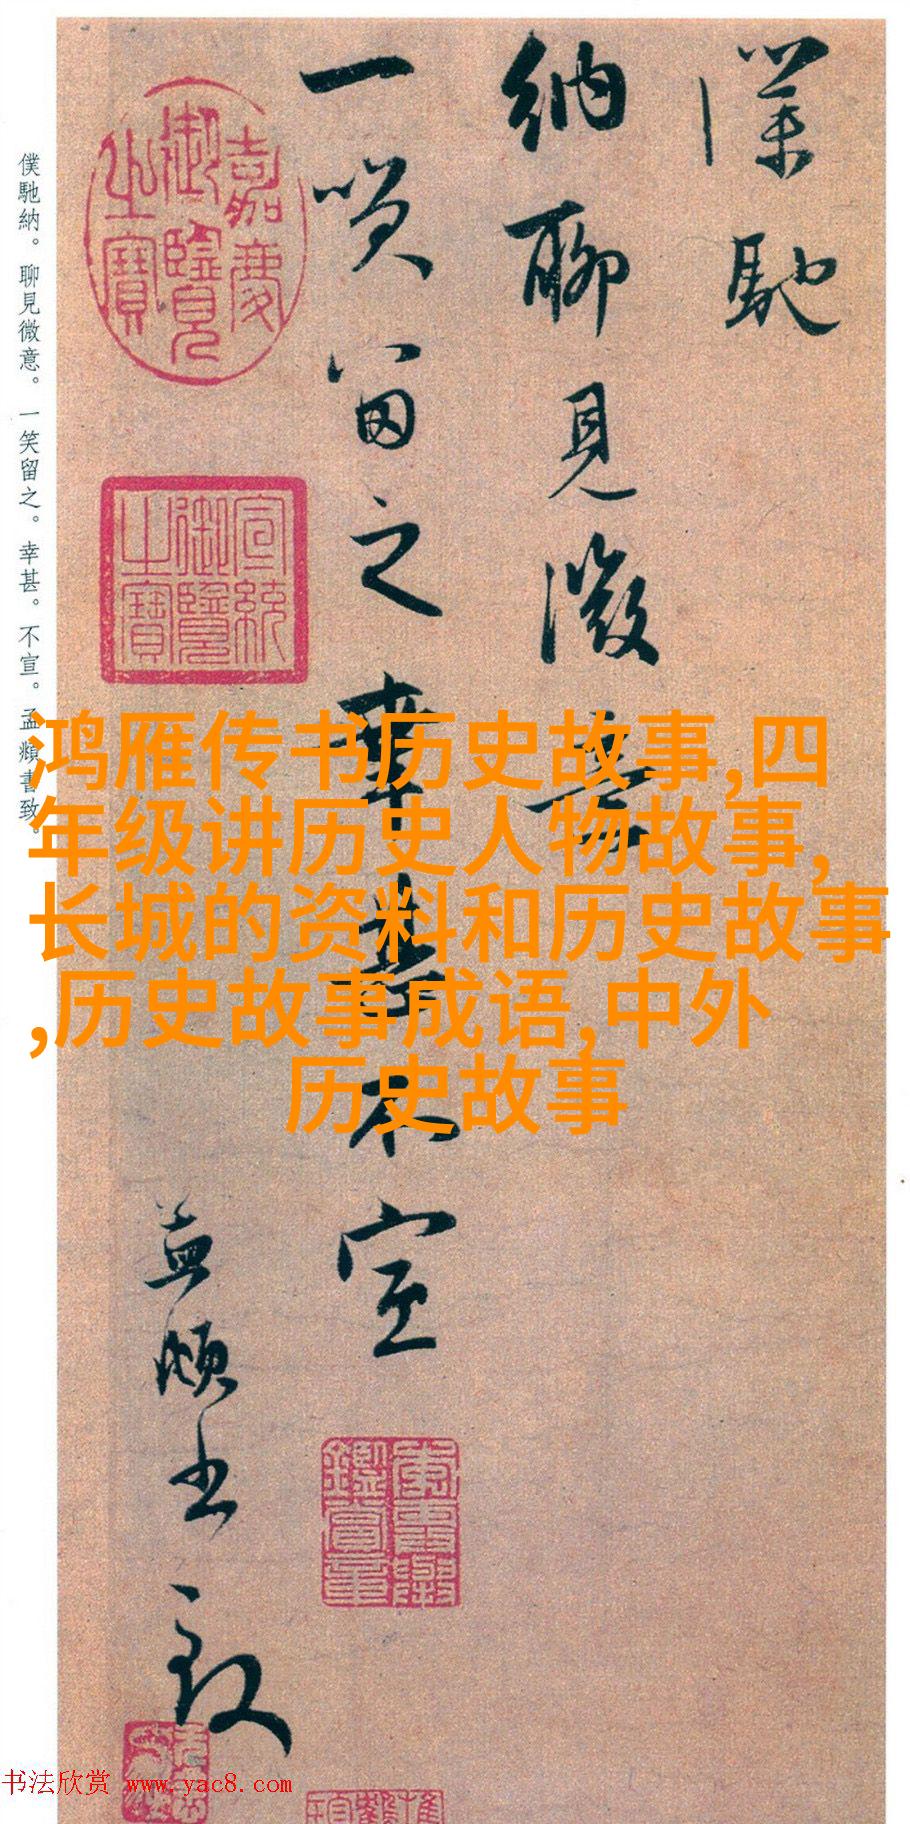 僕馳
納聊見微意
一笑留之幸甚不宣
孟頫书致
嘉慶御覽之寶
宣統御覽之寶
僕馳納。聊見微意。一笑留之。幸甚。不宣。孟頫書致。
鸿雁传书历史故事,四
年级讲历史人物故事,
长城的资料和历史故事
,历史故事成语,中外
历史故事
书法欣赏 www.yac8.com